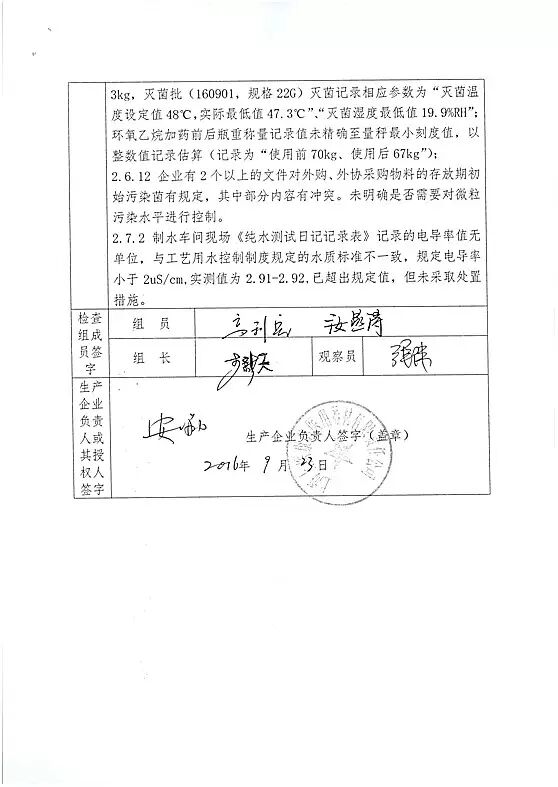 3kg，灭菌批（160901，规格22G）灭菌记录相应参数为“灭菌温
度设定值48℃，实际最低值47.3℃”、“灭菌湿度最低值19.9%RH”；
环氧乙烷加药前后瓶重称量记录值未精确至量秤最小刻度值，以
整数值记录估算（记录为“使用前70kg、使用后67kg”）；
2.6.12 企业有2个以上的文件对外购、外协采购物料的存放期初
始污染菌有规定，其中部分内容有冲突。未明确是否需要对微粒
污染水平进行控制。
2.7.2 制水车间现场《纯水测试日记记录表》记录的电导率值无
单位，与工艺用水控制制度规定的水质标准不一致，规定电导率
小于 2uS/cm，实测值为 2.91-2.92，已超出规定值，但未采取处置
措施。
检查
组成
员签
字
组 员
组 长
观察员
生产
企业
负责
人或
其授
权人
签字
生产企业负责人签字（盖章）
2016年 9月 23日